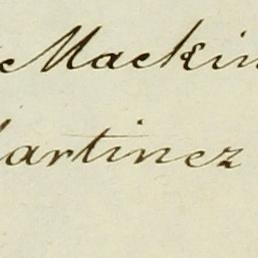 Mackin
artinez